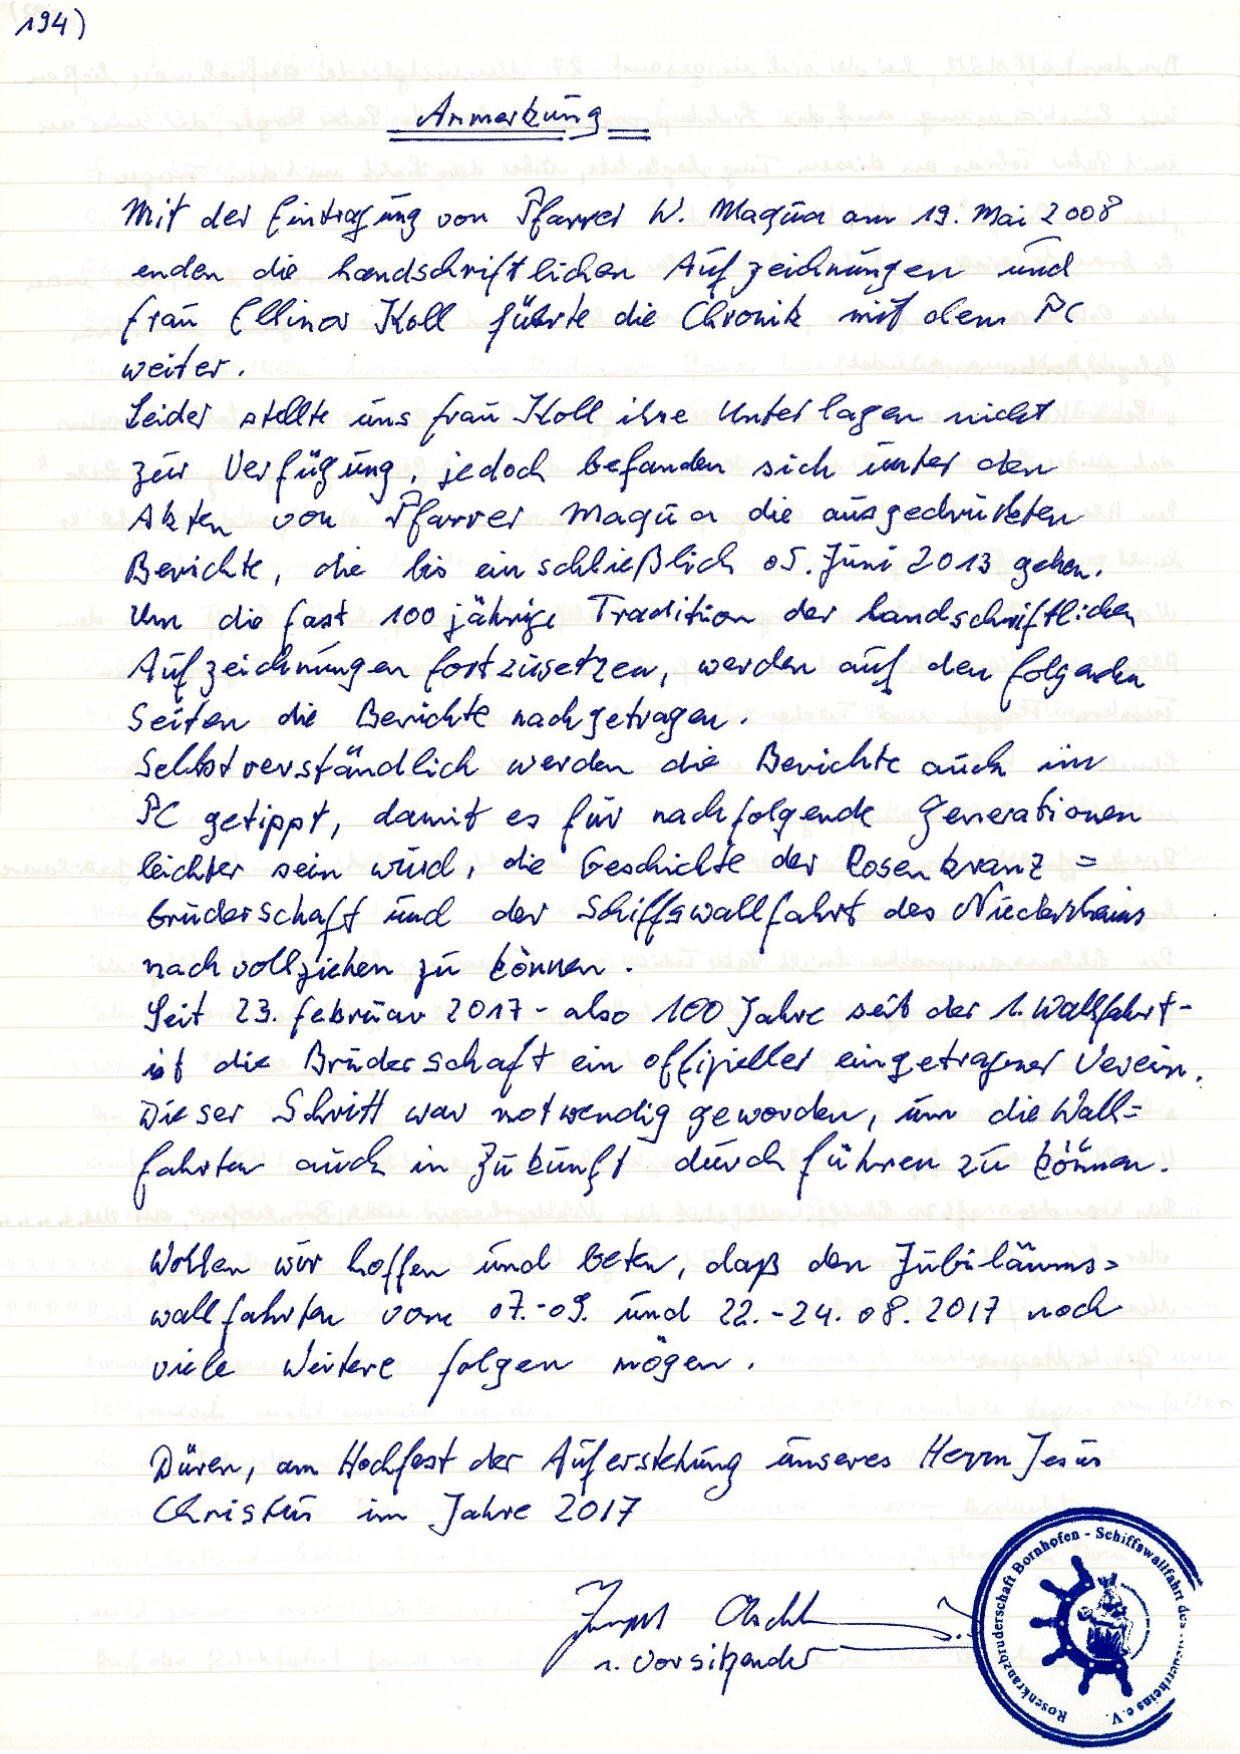 194)
Anmerkung
Mit der Eintragung von Pfarrer W. Maqua am 19. Mai 2008
enden die handschriftlichen Aufzeichnungen und
Frau Ellinor Koll führte die Chronik mit dem PC
weiter.
Leider stellte uns Frau Koll ihre Unterlagen nicht
zur Verfügung, jedoch befanden sich unter den
Akten von Pfarrer Maqua die ausgedruckten
Berichte, die bis einschließlich 05. Juni 2013 gehen.
Um die fast 100 jährige Tradition der handschriftlichen
Aufzeichnungen fortzusetzen, werden auf den folgenden
Seiten die Berichte nachgetragen.
Selbstverständlich werden die Berichte auch im
PC getippt, damit es für nachfolgende Generationen
leichter sein wird, die Geschichte der Rosenkranz=
bruderschaft und der Schiffswallfahrt des Niederrheins
nachvollziehen zu können.
Seit 23. Februar 2017 - also 100 Jahre seit der 1. Wallfahrt -
ist die Bruderschaft ein offizieller eingetragener Verein.
Dieser Schritt war notwendig geworden, um die Wall=
fahrten auch in Zukunft durchführen zu können.
Wollen wir hoffen und beten, daß den Jubiläums=
wallfahrten vom 07.-09. und 22.-24.08.2017 noch
viele weitere folgen mögen.
Düren, am Hochfest der Auferstehung unseres Herrn Jesus
Christus im Jahre 2017
1. Vorsitzender
Rosenkranzbruderschaft Bornhofen - Schiffswallfahrt des Niederrheins e.V.